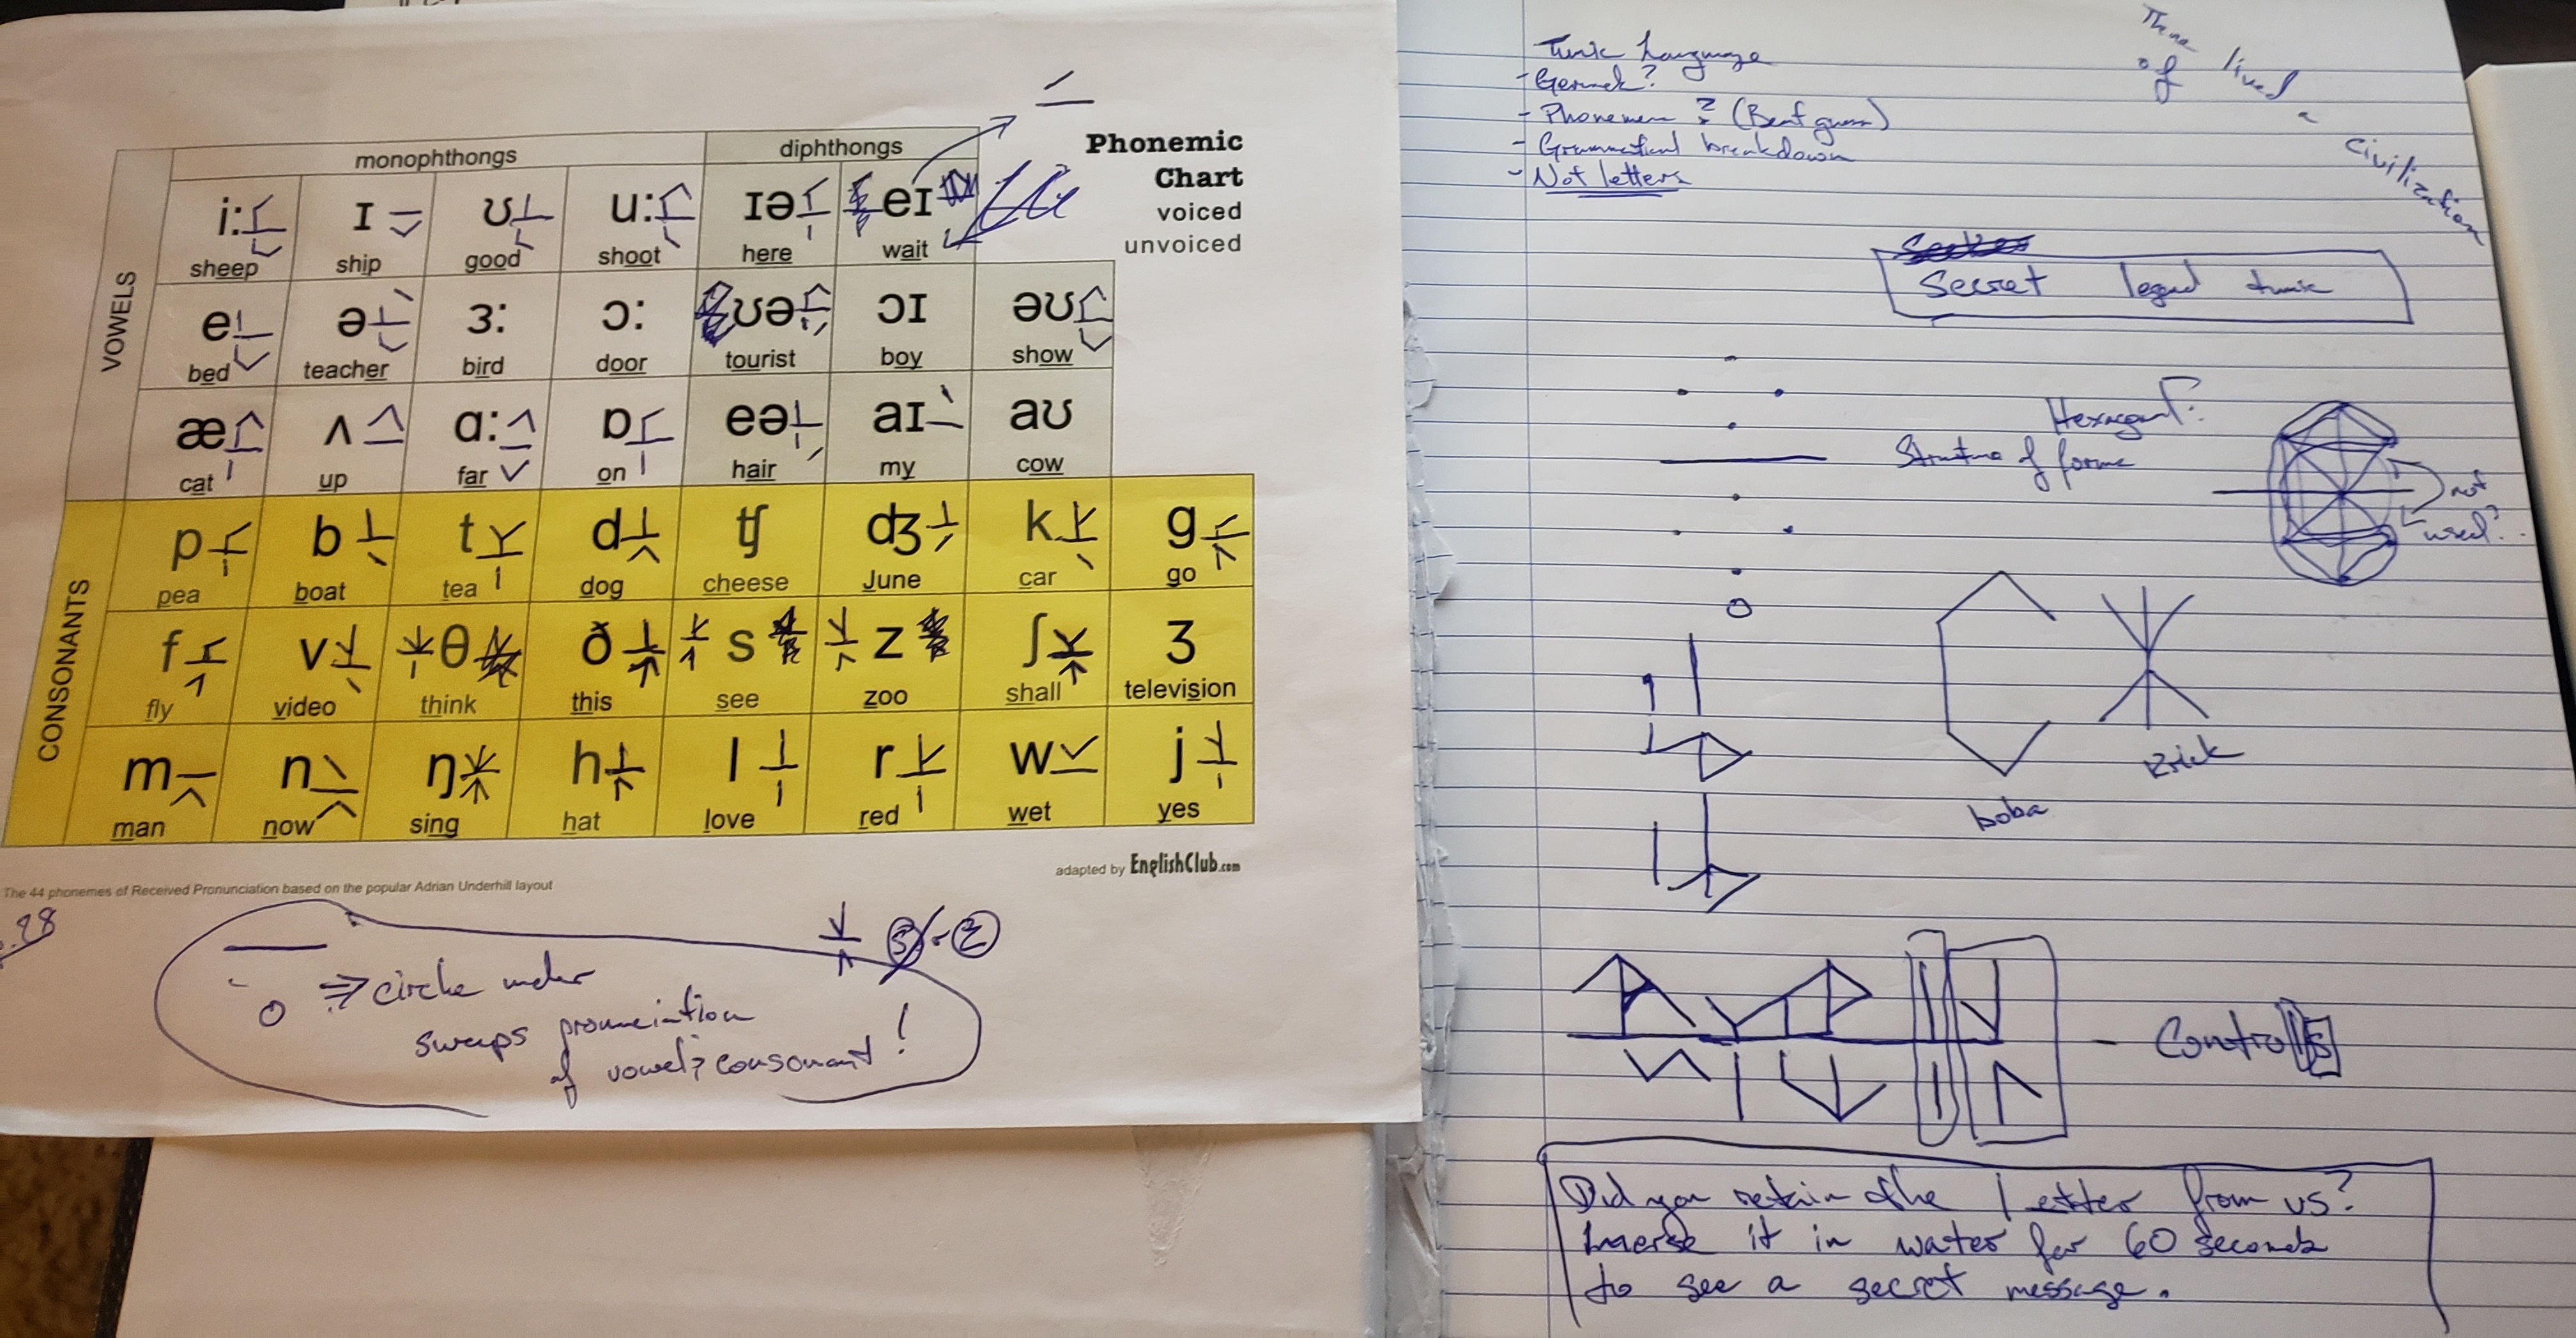 monophthongs
diphthongs
Phonemic
Chart
voiced
unvoiced
VOWELS
i: ɪ ʊ u: ɪə eɪ
sheep ship good shoot here wait
e ə ɜ: ɔ: ʊə ɔɪ əʊ
bed teacher bird door tourist boy show
æ ʌ ɑ: ɒ eə aɪ aʊ
cat up far on hair my cow
CONSONANTS
p b t d ʧ ʤ k g
pea boat tea dog cheese June car go
f v θ ð s z ʃ ʒ
fly video think this see zoo shall television
m n ŋ h l r w j
man now sing hat love red wet yes
adapted by EnglishClub.com
The 44 phonemes of Received Pronunciation based on the popular Adrian Underhill layout
28
⇒ circle under
swaps pronunciation
of vowel & consonant!
Tunic Language
- Phonemes? (Best guess)
- Grammatical breakdown
- Not letters
There lived a
of
civilization
Secret legend tunic
Hexagon?
Structure of forms
not
used?
boba
Kick
- Controlls
Did you retain the letter from us?
Imerse it in water for 60 seconds
to see a secret message.